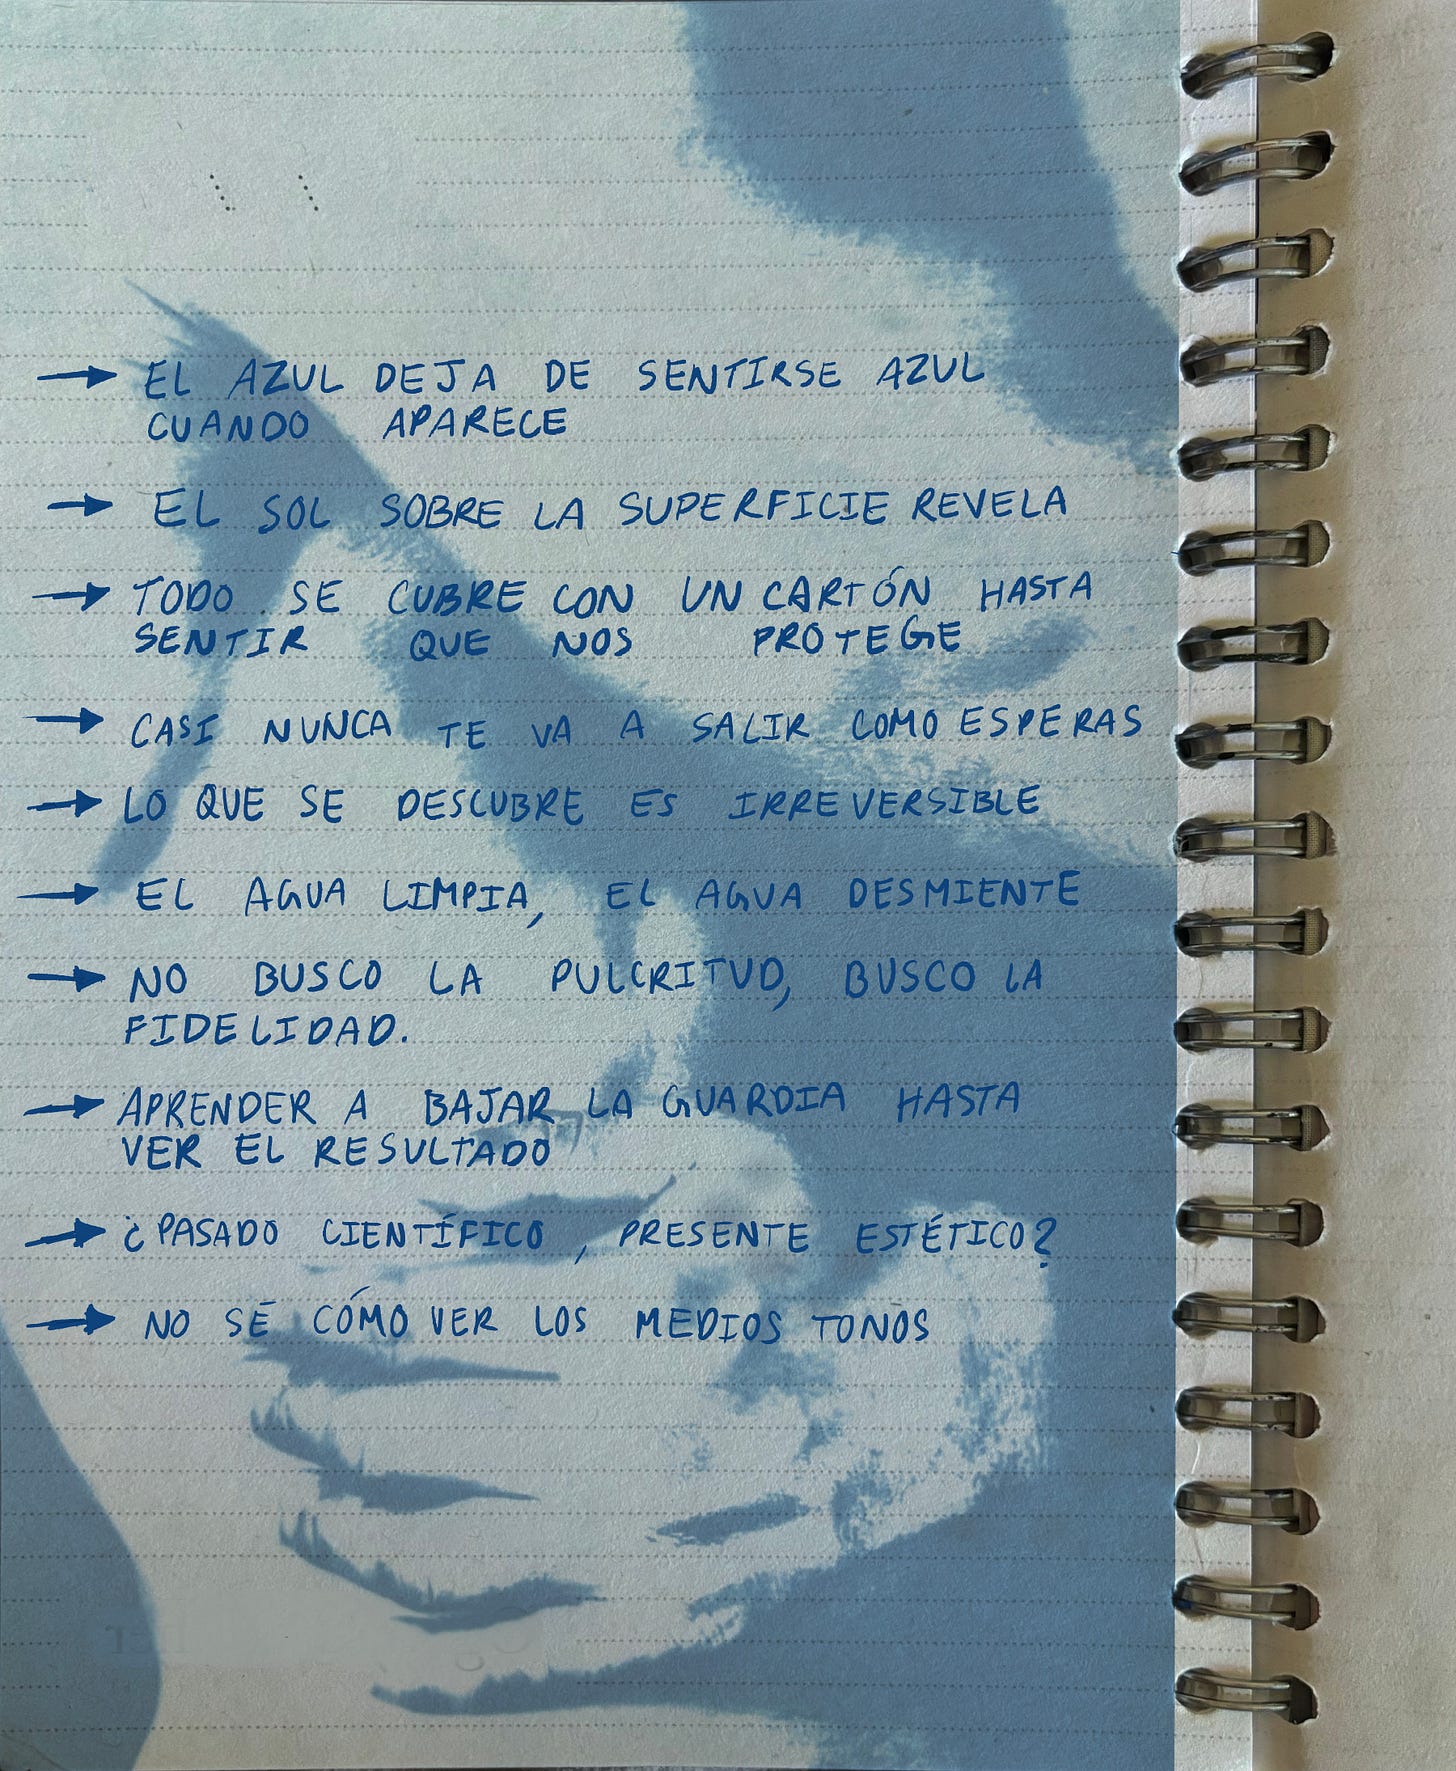 → EL AZUL DEJA DE SENTIRSE AZUL
CUANDO APARECE
→ EL SOL SOBRE LA SUPERFICIE REVELA
→ TODO SE CUBRE CON UN CARTÓN HASTA
SENTIR QUE NOS PROTEGE
→ CASI NUNCA TE VA A SALIR COMO ESPERAS
→ LO QUE SE DESCUBRE ES IRREVERSIBLE
→ EL AGUA LIMPIA, EL AGUA DESMIENTE
→ NO BUSCO LA PULCRITUD, BUSCO LA
FIDELIDAD.
→ APRENDER A BAJAR LA GUARDIA HASTA
VER EL RESULTADO
→ ¿PASADO CIENTÍFICO, PRESENTE ESTÉTICO?
→ NO SÉ CÓMO VER LOS MEDIOS TONOS